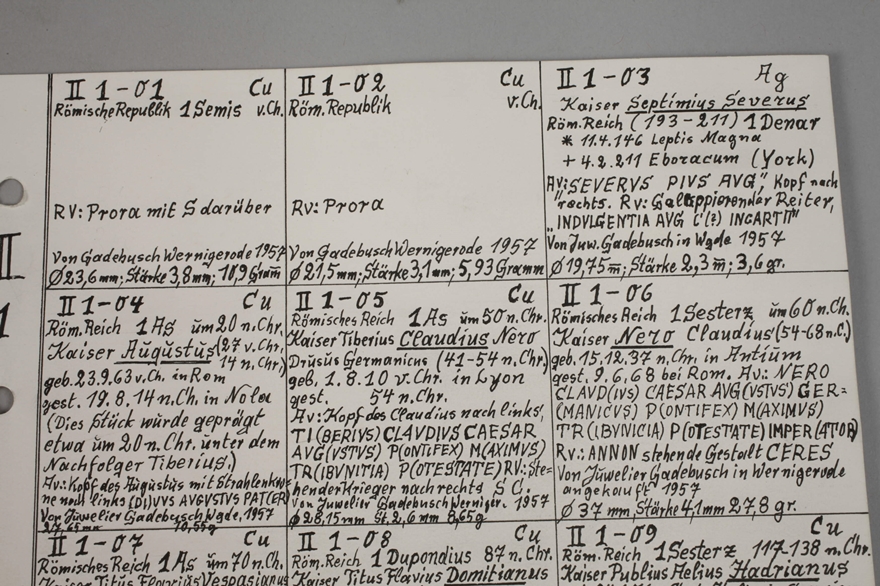 II 1-01 Cu
Römische Republik 1 Semis v.Ch.
RV: Prora mit S darüber
Von Gadebusch Wernigerode 1957
Ø 23,6 mm; Stärke 3,8 mm; 18,9 Gram
II 1-02 Cu
Röm. Republik v.Ch.
RV: Prora
Von Gadebusch Wernigerode 1957
Ø 21,5 mm; Stärke 3,1 mm; 5,93 Gramm
II 1-03 Ag
Kaiser Septimius Severus
Röm. Reich (193-211) 1 Denar
* 11.4.146 Leptis Magna
+ 4.2.211 Eboracum (York)
AV: SEVERVS PIVS AVG", Kopf nach
rechts. Rv: Galoppierender Reiter,
"INDVLGENTIA AVG C(?) INCARTH"
Von Juw. Gadebusch in Wgde 1957
Ø 19,75 m; Stärke 2,3 m; 3,6 gr.
II 1-04 Cu
Röm. Reich 1 As um 20 n. Chr.
Kaiser Augustus (27 v. Chr.
14 n. Chr.)
geb. 23.9.63 v. Ch. in Rom
gest. 19.8.14 n. Ch. in Nola
(Dies Stück wurde geprägt
etwa um 20 n. Chr. unter dem
Nachfolger Tiberius.)
Av: Kopf des Augustus mit Strahlenkro
ne nach links (DI)VVS AVGVSTVS PAT(ER)
Von Juwelier Gadebusch Wgde, 1957
10,55g
II 1-05 Cu
Römisches Reich 1 As um 50 n. Chr.
Kaiser Tiberius Claudius Nero
Drusus Germanicus (41-54 n. Chr.)
geb. 1.8.10 v. Chr. in Lyon
gest. 54 n. Chr.
Av: Kopf des Claudius nach links,
TI(BERIVS) CLAVDIVS CAESAR
AVG(VSTVS) P(ONTIFEX) M(AXIMVS)
TR(IBVNITIA) P(OTESTATE) RV: Ste=
hender Krieger nach rechts S C.
Von Juwelier Gadebusch Werniger. 1957
Ø 28,15 mm St. 2,6 mm 8,65g
II 1-06
Römisches Reich 1 Sesterz um 60 n. Ch.
Kaiser Nero Claudius (54-68 n.C.)
geb. 15.12.37 n. Chr. in Antium
gest. 9.6.68 bei Rom. Av: NERO
CLAVD(IVS) CAESAR AVG(VSTVS) GER=
(MANICVS) P(ONTIFEX) M(AXIMVS)
TR(IBVNICIA) P(OTESTATE) IMPER(ATOR)
Rv.: ANNON stehende Gestalt CERES,
Von Juwelier Gadebusch in Wernigerode
angekauft 1957
Ø 37 mm, Stärke 4,1 mm 27,8 gr.
II 1-07 Cu
Römisches Reich 1 As um 70 n. Ch.
Kaiser Titus Flavius Vespasianus
II 1-08 Cu
Röm. Reich 1 Dupondius 87 n. Chr.
Kaiser Titus Flavius Domitianus
II 1-09 Cu
Röm. Reich 1 Sesterz 117-138 n. Chr.
Kaiser Publius Aelius Hadrianus
II
1